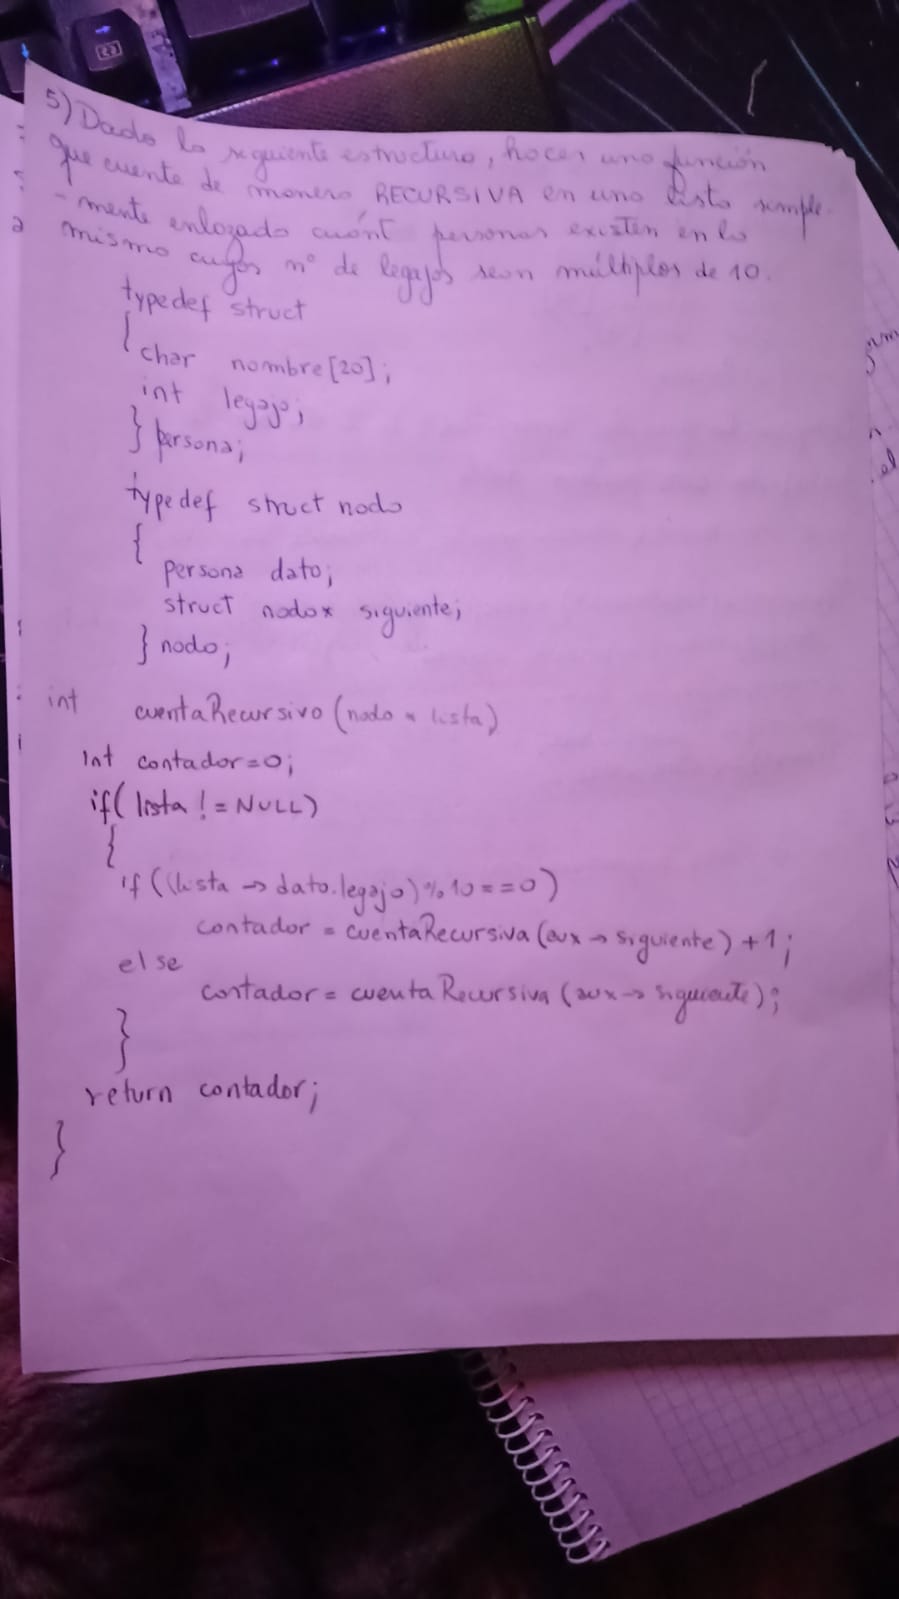 5) Dada la siguiente estructura, hacer una función
que cuente de manera RECURSIVA en una lista simple-
-mente enlazada cuánt personas existen en la
misma cuyos nº de legajos sean múltiplos de 10.
typedef struct
{
char nombre[20];
int legajo;
} persona;
typedef struct nodo
{
persona dato;
struct nodo* siguiente;
} nodo;
int cuentaRecursivo (nodo * lista)
int contador=0;
if( lista != NULL)
{
if ((lista -> dato.legajo)%10==0)
contador = cuentaRecursiva (aux -> siguiente) +1;
else
contador = cuentaRecursiva (aux -> siguiente);
}
return contador;
}